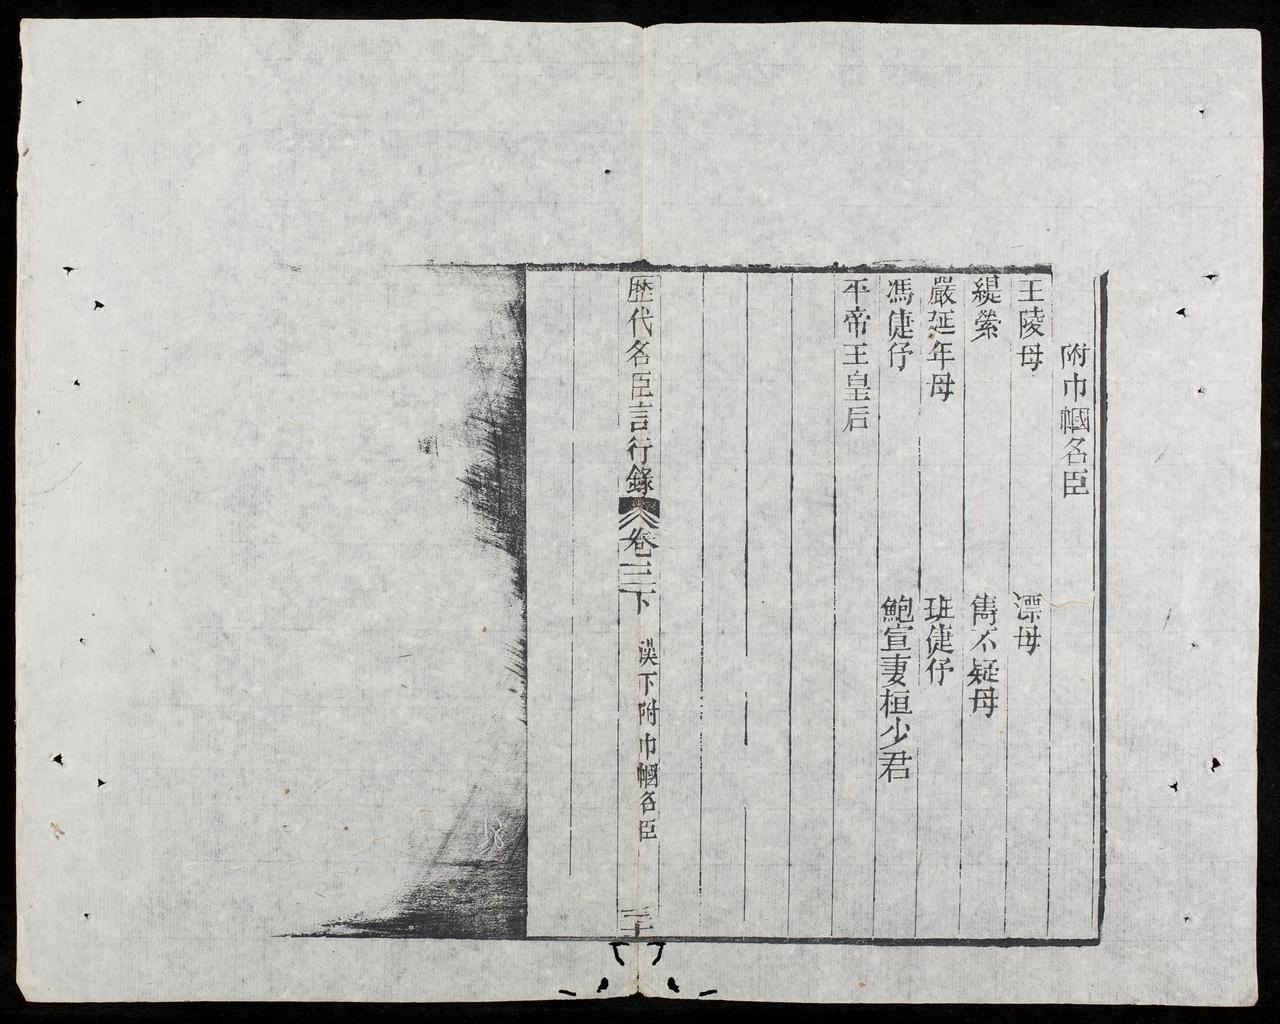 附巾幗名臣
王陵母
漂母
緹縈
雋不疑母
嚴延年母
班倢伃
馮倢伃
鮑宣妻桓少君
平帝王皇后
歷代名臣言行錄
卷三下
漢下附巾幗名臣
三十